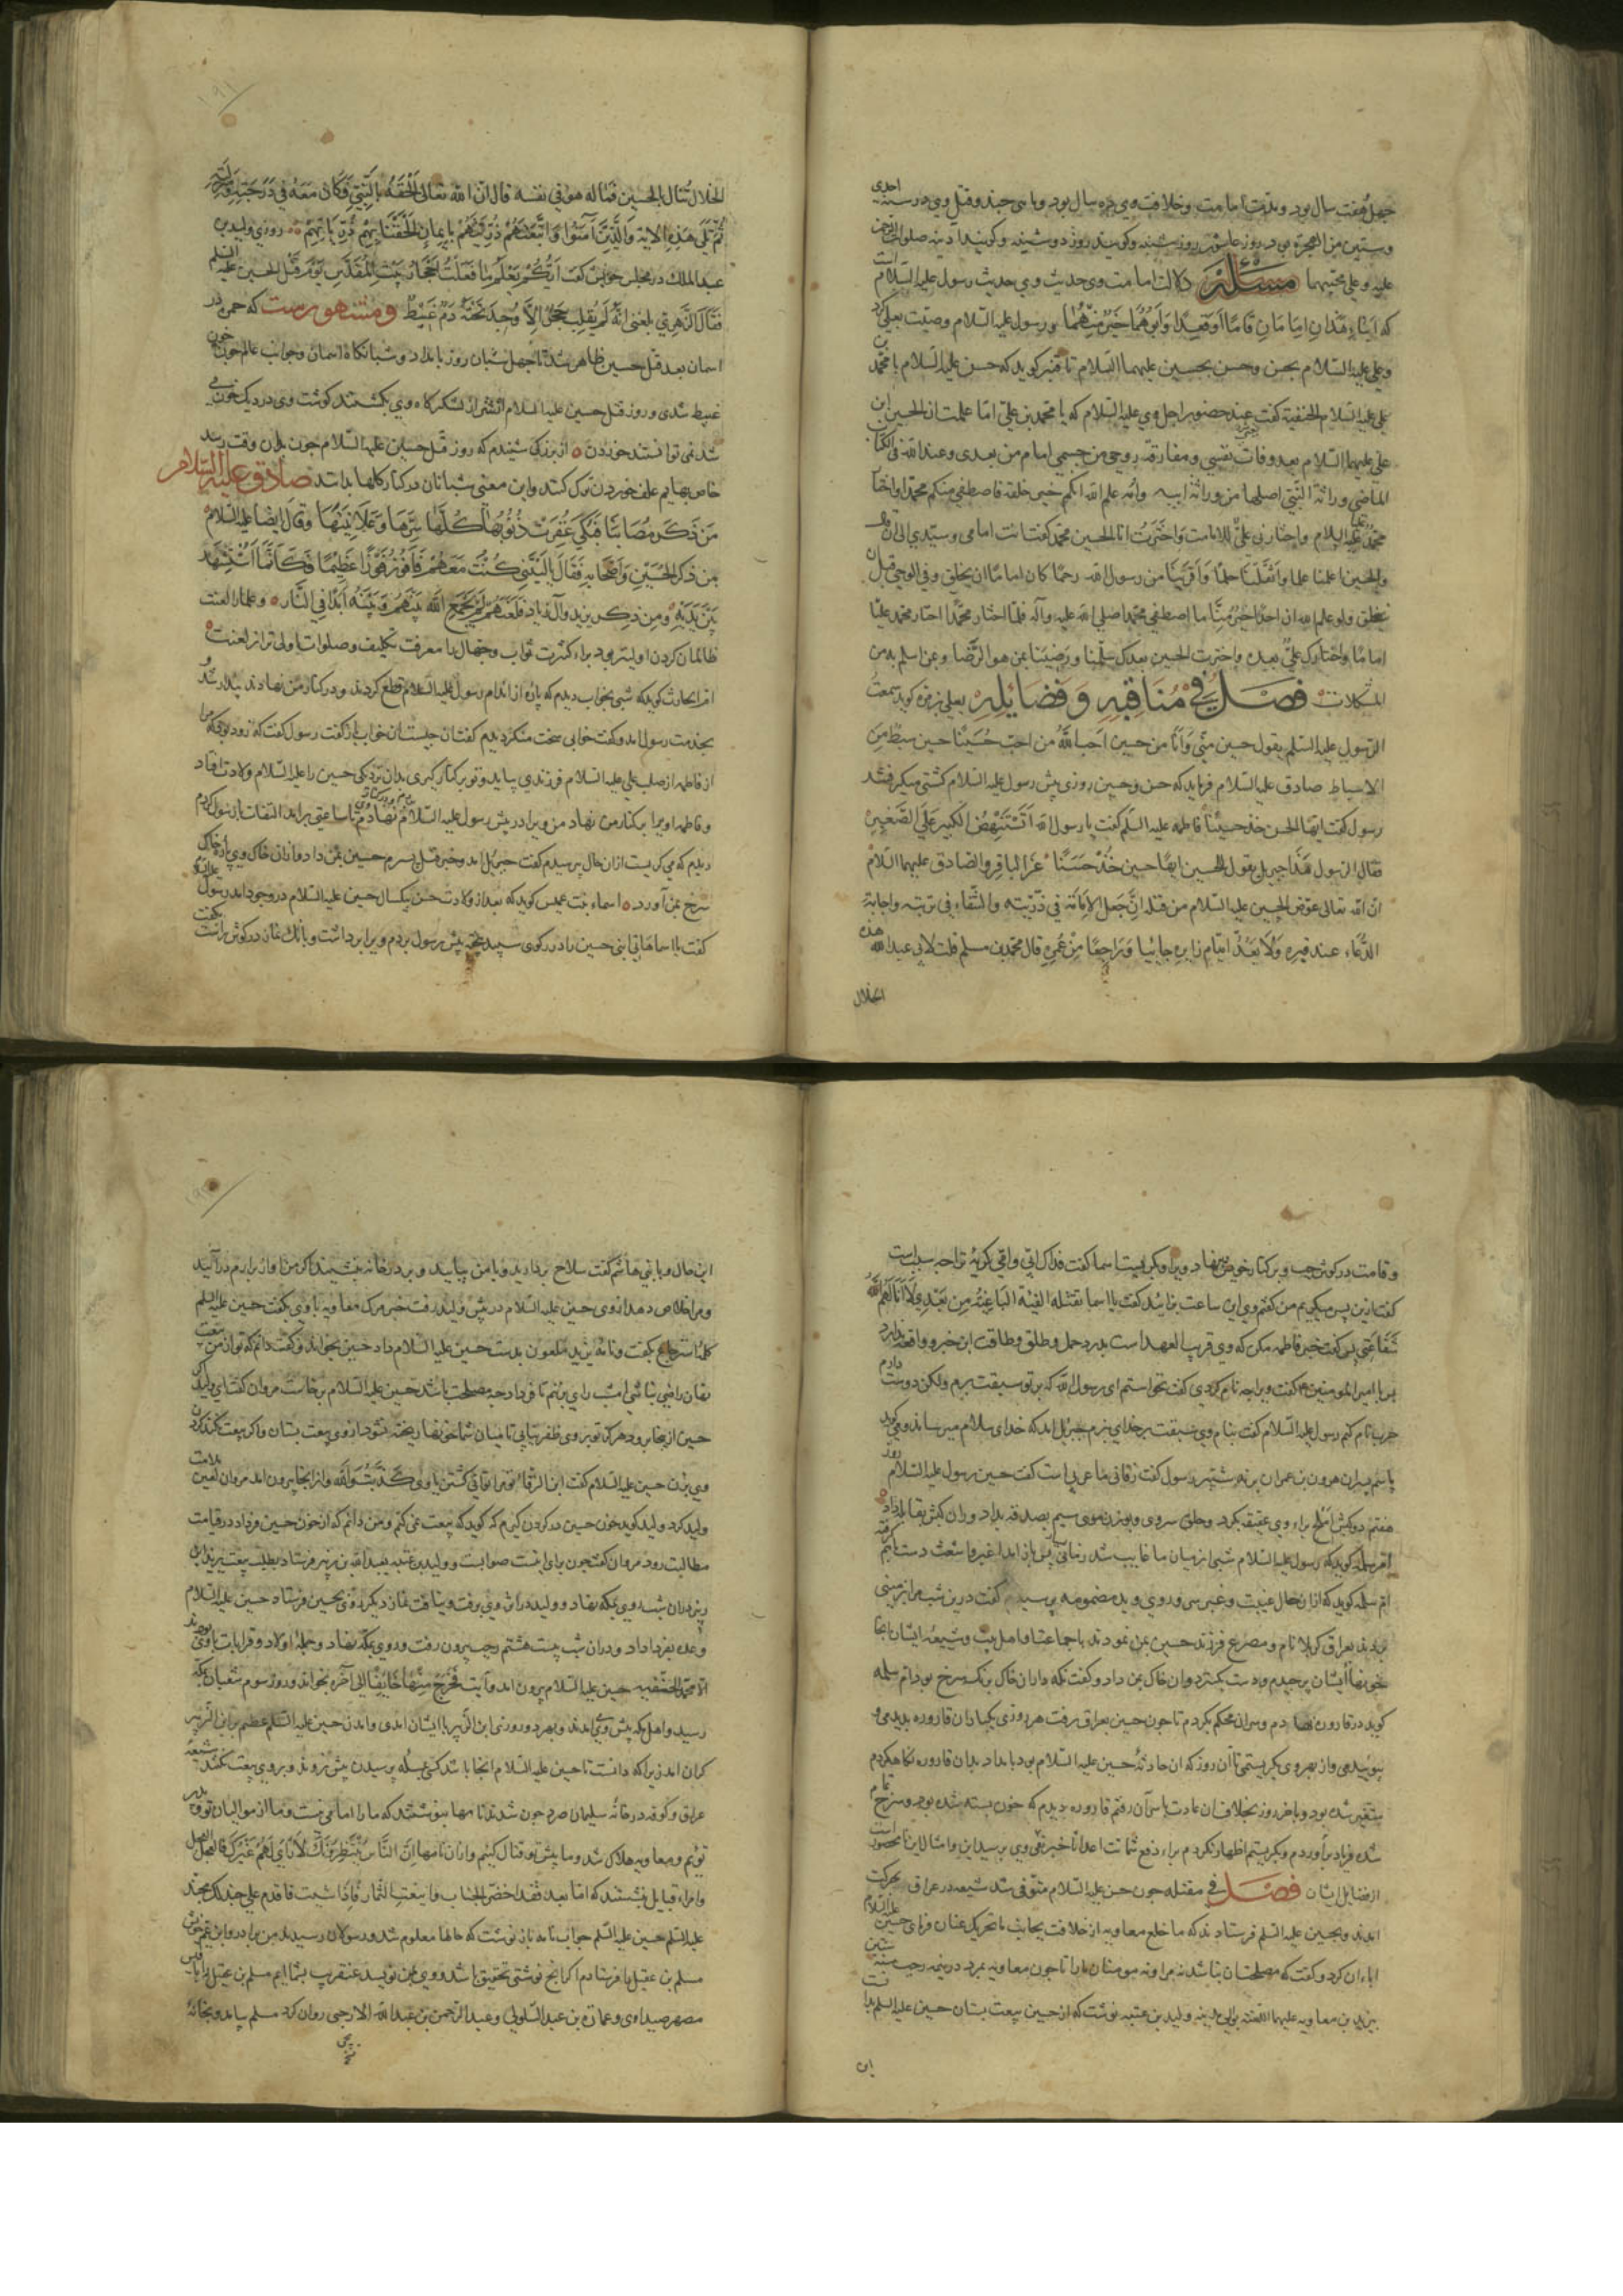 چهل و هفت سال بود و مدت امامت و خلافت وی ده سال بود و ماهی چند و قتل وی در سنه احدی
و ستین من الهجرة بود روز عاشورا روز شنبه و گویند روز دوشنبه و گویند آدینه صلوات الرحمن
علیه و علی محبیهما مسئلة دلالت امامت وی حدیث وی حدیث رسول علیه السلام است
که ابنای هذان امامان قاما او قعدا و ابوهما خیر منهما و رسول علیه السلام وصیت بعلی کرد
و علی علیه السلام بحسن و حسن بحسین علیهما السلام تا قنبر گوید که حسن علیه السلام با محمد بن
علی علیه السلام الحنفیة گفت عند حضور اجل وی علیه السلام که یا محمد بن علی اما علمت ان الحسین ابن
علی علیهما السلام بعد وفات نفسی و مفارقة روحی من جسمی امام من بعدی و عند الله فی الکتاب
الماضی وراثة النبی اصابها من وراثة ابیه و امه علم الله انکم خیر خلقه فاصطفی منکم محمدا و اختار
محمد علیا علیه السلام و اختارنی علی للامامت و اخترت انا الحسین محمد گفت انت امامی و سیدی الی ان
والحسین اعلمنا علما و اثقلنا حلما و اقربنا من رسول الله رحما کان اماما قبل ان یخلق و فی الوحی قبل ان
ینطق ولو علم الله ان احدا خیر منا ما اصطفی محمدا صلی الله علیه و آله فلما اختار محمدا اختار محمد علیا
اماما و اختارک علی بعده و اخترت الحسین بعدک سلمنا و رضینا بمن هو الرضا و بمن اسلم به من
المشکلات فصل فی مناقبه و فضایله یعلی بن مره گوید سمعت
الرسول علیه السلم یقول حسین منی و انا من حسین احب الله من احب حسینا حسین سبط من
الاسباط صادق علیه السلام فرماید که حسن و حسین روزی پیش رسول علیه السلام کشتی میگرفتند
رسول گفت ایها الحسن خذ حسینا فاطمه علیه السلم گفت یا رسول الله اتستنهض الکبیر علی الصغیر
فقال الرسول هذا جبریل یقول للحسین ایها حسین خذ حسنا عن الباقر و الصادق علیهما السلام
ان الله تعالی عوض الحسین علیه السلام من قتله ان جعل الامامة فی ذریته و الشفاء فی تربته و اجابة
الدعاء عند قبره و لا یعد ایام زایره جائیا و راجعا من عمره قال محمد بن مسلم قلت لابی عبد الله هذه
الخلال
الخلال تنال بالحسین فما له هو فی نفسه قال ان الله تعالی الحقه بالنبی فکان معه فی درجته و منزلته
ثم تلی هذه الایة و الذین آمنوا و اتبعتهم ذریتهم بایمان الحقنا بهم ذریاتهم روزی ولید بن
عبد الملک در مجلس خواص گفت ایکم یعلم ما فعلت احجار بیت المقدس یوم قتل الحسین علیه السلم
فقال الزهری بلغنی انه لم یقلب حجر الا وجد تحته دم عبیط و مشهورست که حمره در
اسمان بعد قتل حسین ظاهر شد تا چهل شبان روز بامداد و شبانگاه اسمان و جوانب عالم چون خون
عبیط شدی و روز قتل حسین علیه السلام اشتر از لشکرگاه وی بکشتند گوشت وی در دیک خون
شد نمی توانستند خوردن از بزرگی شنیدم که روز قتل حسین علیه السلام چون بدان وقت رسد
خاص بهایم علف خوردن ترک کنند و این معنی شبانان در کنار گلها بدانند صادق علیه السلام
من ذکر مصابنا فبکی غفرت ذنوبه کلها سرها و علانیتها و قال ایضا علیه السلام
من ذکر الحسین و اصحابه فقال یا لیتنی کنت معهم فافوز فوزا عظیما فکانما استشهد
بین یدیه و من ذکر یزید و آل زیاد فلعنهم لم یجمع الله بینهم و بینه ابدا فی النار و علما را لعنت
ظالمان کردن اولیتر بود براء کثرت ثواب و جهال را معرفت تکلیف و صلوات اولی تر از لعنت
ام الحارث گوید که شبی بخواب دیدم که پاره از اندام رسول علیه السلام قطع کردند و در کنار من نهادند بیدار شد و
بخدمت رسول امد و گفت خوابی سخت منکر دیدم گفت ان چیست ان خواب باز گفت رسول گفت که زود بود که مرا
از فاطمه از صلب علی علیه السلام فرزندی بیاید و تو بر کنار گیری بدان نزدیکی حسین را علیه السلام ولادت افتاد
و فاطمه او را بکنار من نهاد من ویرا در پیش رسول علیه السلام بردم و در کنار وی نهادم تا ساعتی براید التفات بازرسول کردم
دیدم که می گریست ازان حال پرسیدم گفت جبریل امد و خبر قتل پسرم حسین بمن داد و ازان خاک وی پاره خاک
سرخ بمن آورد اسماء بنت عمیس گوید که بعد از ولادت حسن بیکسال حسین علیه السلام در وجود امد رسول علیه السلام
گفت یا اسما هاتی ابنی حسین را در رکوی سپید پیچیده پیش رسول بردم ویرا برداشت و بانک نماز در گوش راست بگفت
و قامت در گوش چپ و بر کنار خویش نهاد ویرا و بگریست اسما گفت فداک ابی و امی گریه ترا چه سبب است
گفت ازین پسر میگریم من گفتم وی این ساعت بزائید گفت یا اسما تقتله الفئة الباغیة من بعدی لا انالهم الله
شفاعتی پس گفت خبر فاطمه مکن که وی قریب العهد است
پس با امیر المومنین گفت ویرا چه نام کردی گفت نخواستم ای رسول الله که بر تو سبقت برم ولکن دوست دارم
حرب نام کنم رسول علیه السلام گفت بنام وی سبقت بر خدای نبرم جبریل امد که خدای سلام میرساند و می گوید
باسم پسران هرون بن عمران بر نه شبیر رسول گفت زفانی ما عربی است گفت حسین رسول علیه السلام روز
هفتم دو کبش املح براء وی عقیقه بکرد و حلق سر وی و بوزن موی سیم بصدقه بداد و ران کبش بقابله داد
ام سلمه گوید که رسول علیه السلام شبی از میان ما غایب شد زمانی پس باز امد اغبر و اشعث دست بهم گرفته
ام سلمه گوید که ازان حال غیبت و غبر سر و روی و ید مضمومه پرسیدم گفت درین شب مرا بزمینی
بردند بعراق کربلا نام و مصرع فرزند حسین بمن نمودند با جماعت اهل بیت و شیعه ایشان انجا
خونهاء ایشان برچیدم و دست بگسترد و ان خاک بمن داد و گفت نگه دار ان خاک برنک سرخ بود ام سلمه
گوید در قاروره نهادم و سر ان محکم بکردم تا چون حسین بعراق برفت هر روزی یکبار ان قاروره بدیدمی و
ببوئیدمی و از بهر وی بگریستمی تا ان روز که ان حادثه حسین علیه السلام بود بامداد بدان قاروره نگاه کردم
متغیر نشده بود و باخر روز بخلاف ان عادت باسر ان رفتم قاروره دیدم که خون بسته شده بود و سرخ تمام
شده فریاد براوردم و بگریستم اظهار نکردم براء دفع شماتت اعدا تا خبر نعی وی برسید این و امثال این نا محصورست
از فضایل ایشان فصل فی مقتله چون حسن علیه السلام متوفی شد شیعه در عراق بحرکت
امدند و بحسین علیه السلم فرستادند که ما خلع معاویه از خلافت بجانب ما تحریک عنان فرمای حسین علیه السلام
اباء ان کرد و گفت که مصلحتان نباشد نه مرا و نه مومنان را تا چون معاویه بمرد در نیمه رجب سنه ستین
یزید بن معاویه علیهما اللعنه بوالی مدینه ولید بن عتبه نوشت که از حسین بیعت بستان حسین علیه السلم بدانست
این
این حال و با بنی هاشم گفت سلاح بردارید و با من بیایید و بر در خانه بنشینید اگر من آواز برارم درآئید
و مرا خلاص دهید از وی حسین علیه السلام در پیش ولید رفت خبر مرگ معاویه با وی بگفت حسین علیه السلم
کلمه استرجاع بگفت و نامه یزید ملعون بدست حسین علیه السلام داد حسین بخواند و گفت دانم که تو از من بیعت
نهان راضی نباشی امشب رای بزنم تا فردا چه مصلحت باشد حسین علیه السلام برخاست مروان گفت ای ولید اگر
حسین از اینجا برود هرگز تو بر وی ظفر نیابی تا میان شما خونها ریخته نشود از وی بیعت بستان و اگر بیعت نکند گردن
وی بزن حسین علیه السلام گفت ابن الزرقاء تو مرا توانی کشتن یا وی کذبت و الله و از انجا بیرون امد مروان لعین ملامت
ولید کرد ولید گوید خون حسین در گردن گیرم که گوید که بیعت نمی کنم و من دانم که از خون حسین فرداد در قیامت
مطالبت رود مروان گفت چون رای اینست صوابست و ولید بن عتبه بعبد الله بن زبیر فرستاد بطلب بیعت یزید ابن
زبیر دران شب روی بمکه نهاد و ولید در اثر وی برفت و نیافت نماز دیگر روزی بحسین فرستاد حسین علیه السلام
وعده بفردا داد و دران شب بیست هشتم رجب بیرون رفت و روی بمکه نهاد و جمله اولاد و قرابات با وی بودند
الا محمد الحنفیه حسین علیه السلام بیرون امد و آیت فخرج منها خایفا الی آخره بخواند و روز سوم شعبان بمکه
رسید و اهل مکه پیش وی امدند و بهر دو روزی ابن الزبیر با ایشان امدی و امدن حسین علیه السلم عظیم بر ابن الزبیر
گران امد زیرا که دانست تا حسین علیه السلام انجا باشد کس بمسئله پرسیدن پیش نروند و بر وی بیعت نکنند شیعه
عراق و کوفه در خانه سلیمان صرد جون شدند نامها بنوشتند که ما را امامی نیست و ما از موالیان تو و پدر
توئیم و معاویه هلاک شد و ما پیش تو قتال کنیم و ازان نامها ان الناس ینتظرونک لا رای لهم غیرک فالعجل العجل
و امراء قبایل نبشتند که اما بعد فقد اخضر الجناب و اینعت الثمار فاذا شئت فاقدم علی جند لک مجند
علیه السلم حسین علیه السلم جواب نامه باز نوشت که حالها معلوم شد و رسولان رسیدند من برادر و ابن عم خویش
مسلم بن عقیل را فرستادم اگر انچ نوشتی تحقیق باشد و وی بمن نویسد عنقریب بشما ایم مسلم بن عقیل را با قیس
مصهر صیداوی و عماره بن عبد السلولی و عبد الرحمن بن عبد الله الارحبی روان کرد مسلم بیامد و بخانه